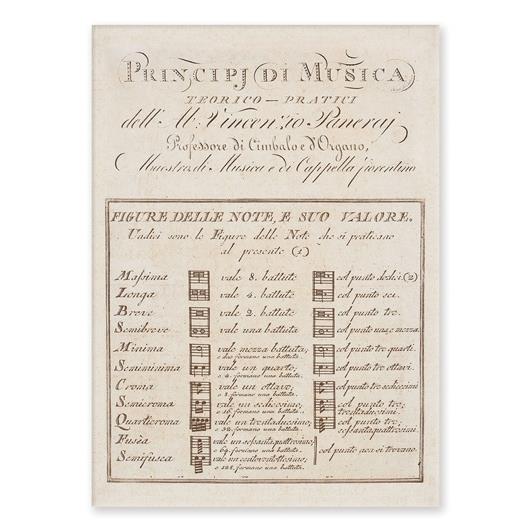 PRINCIPJ DI MUSICA
TEORICO — PRATICI
dell' Ab. Vincenzio Paneraj
Professore di Cimbalo e d'Organo,
Maestro di Musica e di Cappella fiorentino
FIGURE DELLE NOTE, E SUO VALORE.
Undici sono le Figure delle Note che si praticano
al presente (1)
Massima vale 8. battute col punto dodici (2)
Longa vale 4. battute col punto sei.
Breve vale 2. battute col punto tre.
Semibreve vale una battuta col punto una, e mezza.
Minima vale mezza battuta; col punto tre quarti.
e due formano una battuta.
Semiminima vale un quarto; col punto tre ottavi.
e 4. formano una battuta.
Croma vale un ottavo, col punto tre sedicesimi
e 8. formano una battuta.
Semicroma vale un sedicesimo, col punto tre
e 16. formano una battuta. trentaduesimi.
Quarticroma vale un trentaduesimo; col punto tre
e 32. formano una battuta. sessantaquattresimi.
Fusèa vale un sessantaquattresimo;
e 64. formano una battuta.
Semifusea vale un centoventottesimo; col punto non si trovano.
e 128. formano una battuta.